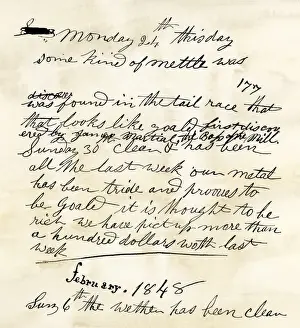 Monday 24th this day
some kind of mettle was
177
was found in the tail race that
that looks like goald first discov
ered by James Martial, the Boss of the Mill.
Sunday 30 clean & has been
all the last week our metal
has been tride and prooves to
be goald it is thought to be
rich we have pict up more than
a hundred dollars worth last
week
february. 1848
Sun 6th the wether has been clean